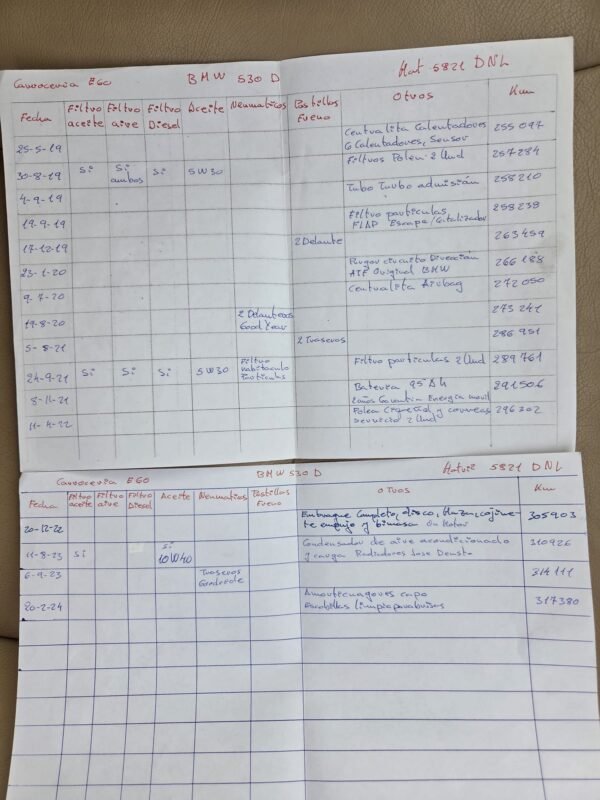 Carroceria E60 BMW 530 D Mat 5821 DNL
Fecha Filtro aceite Filtro aire Filtro Diesel Aceite Neumaticos Pastillas Freno Otros Km
25-5-19 Centralita Calentadores 6 Calentadores, Sensor 255097
30-8-19 Si Si ambos Si 5W30 Filtros Polen 2 Und 257284
4-9-19 Tubo Turbo admisión 258210
19-9-19 Filtro particulas FLAP Escape/Catalizador 258238
17-12-19 2 Delante 263459
23-1-20 Purgar circuito Dirección ATF Original BMW 266188
9-7-20 Centralita Airbag 272050
19-8-20 2 Delanteros Good Year 273241
5-8-21 2 Traseros 286951
24-9-21 Si Si Si 5W30 Filtro habitaculo Particulas Filtro particulas 2 Und 289761
8-11-21 Bateria 95 Ah 2 años Garantia Energia movil 291506
11-4-22 Polea Cigueñal y correas servicio 2 Und 296302
Carroceria E60 BMW 530 D Matri 5821 DNL
Fecha Filtro aceite Filtro aire Filtro Diesel Aceite Neumatios Pastillas Freno OTROS Km
20-12-22 Embrague Completo, disco, Maza, cojinete empuje y bimasa 305903
11-8-23 Si Si 10W40 Condensador de aire acondicionado y carga Radiadores Jose 310926
6-9-23 Traseros 314111
20-2-24 Amortiguagores capo Escobillas limpiaparabrisas 317380